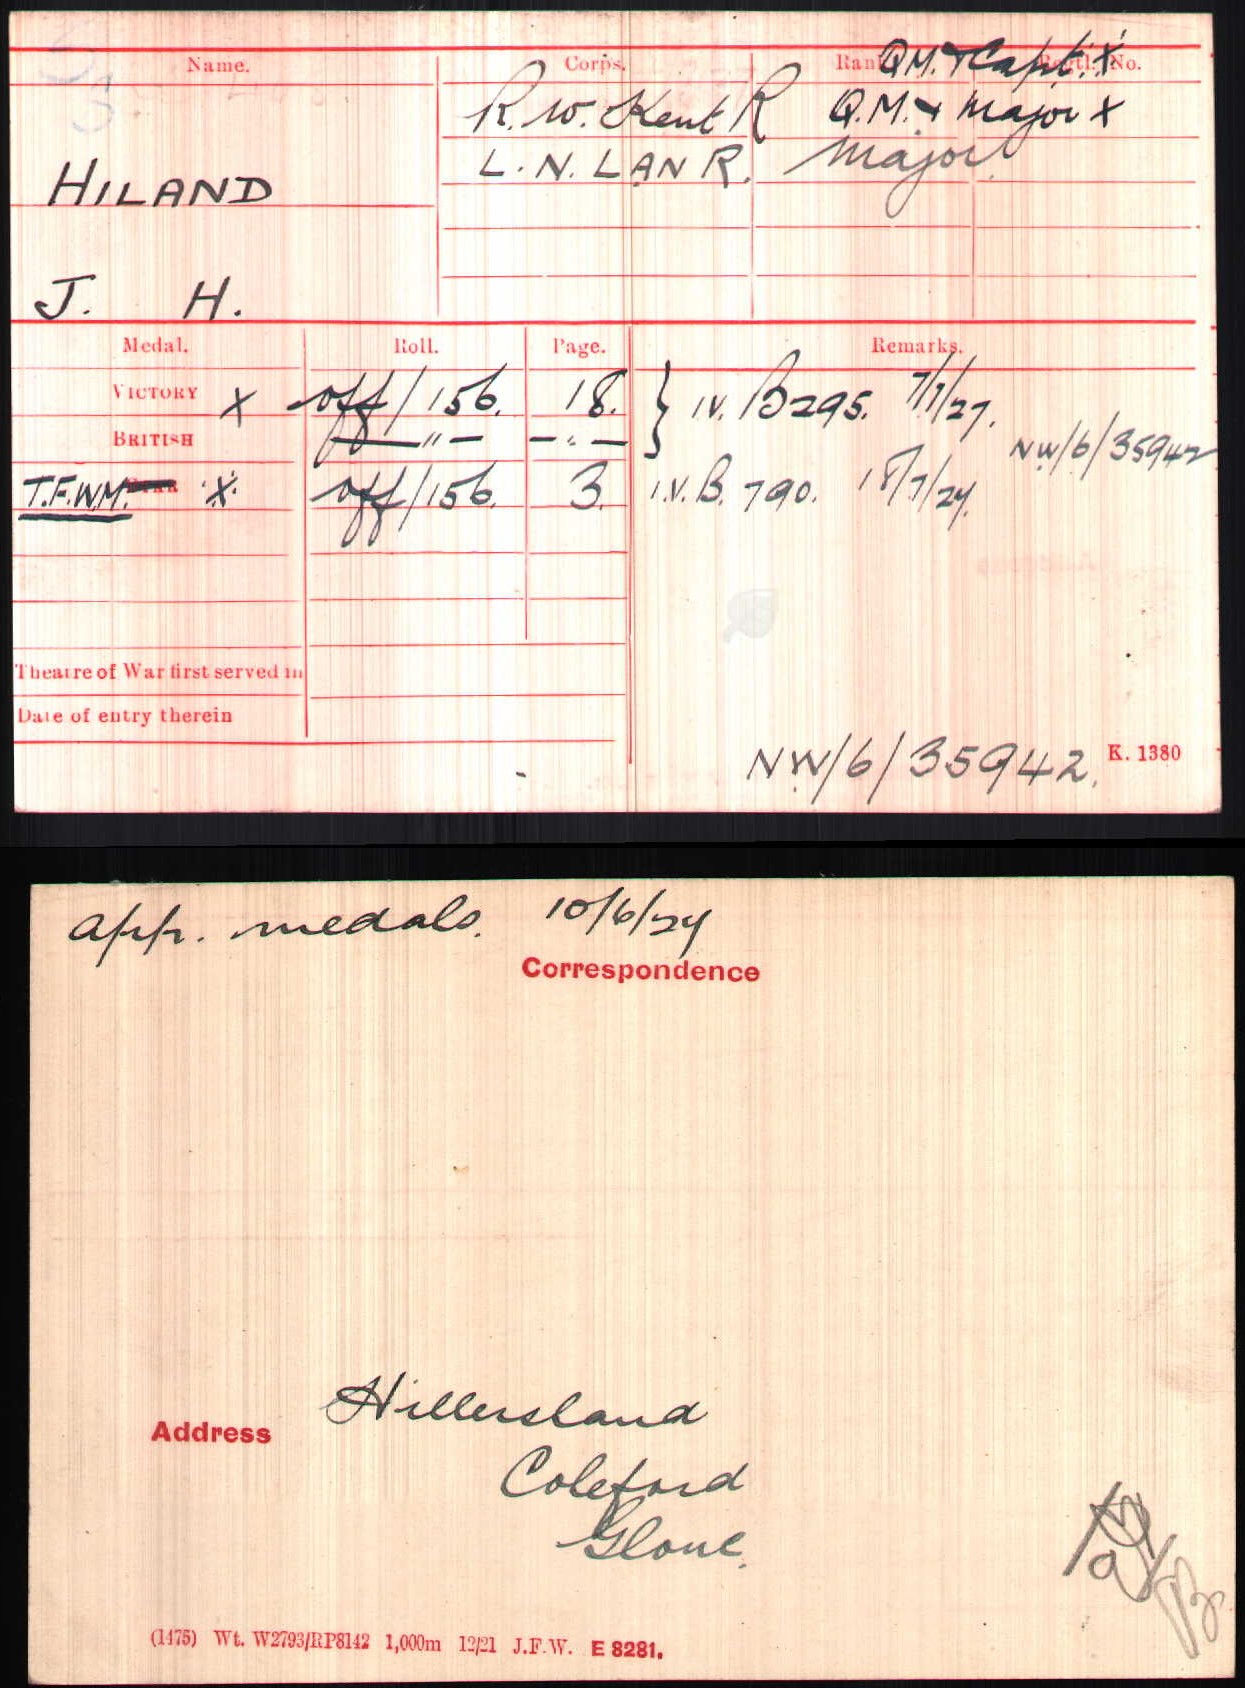 Name. Corps. Rank. Regtl. No.
Q.M. & Capt. X
R. W. Kent R Q.M. & Major X
L. N. LAN R. Major
HILAND
J. H.
Medal. Roll. Page. Remarks.
VICTORY X Off/156. 18. } I.V. B295. 7/7/27.
BRITISH — " — — " — NW/6/35942
T.F.W.M. STAR X Off/156. 3. I.V. B. 790. 18/7/24.
Theatre of War first served in
Date of entry therein
NW/6/35942. K. 1380
app. medals. 10/6/24
Correspondence
Address Hillersland
Coleford
Glouc.
(1475) Wt. W2793/RP8142 1,000m 12/21 J.F.W. E 8281.